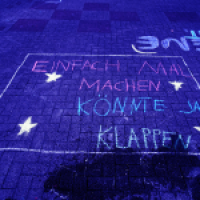 EINFACH MAL
MACHEN
KÖNNTE JA
KLAPPEN